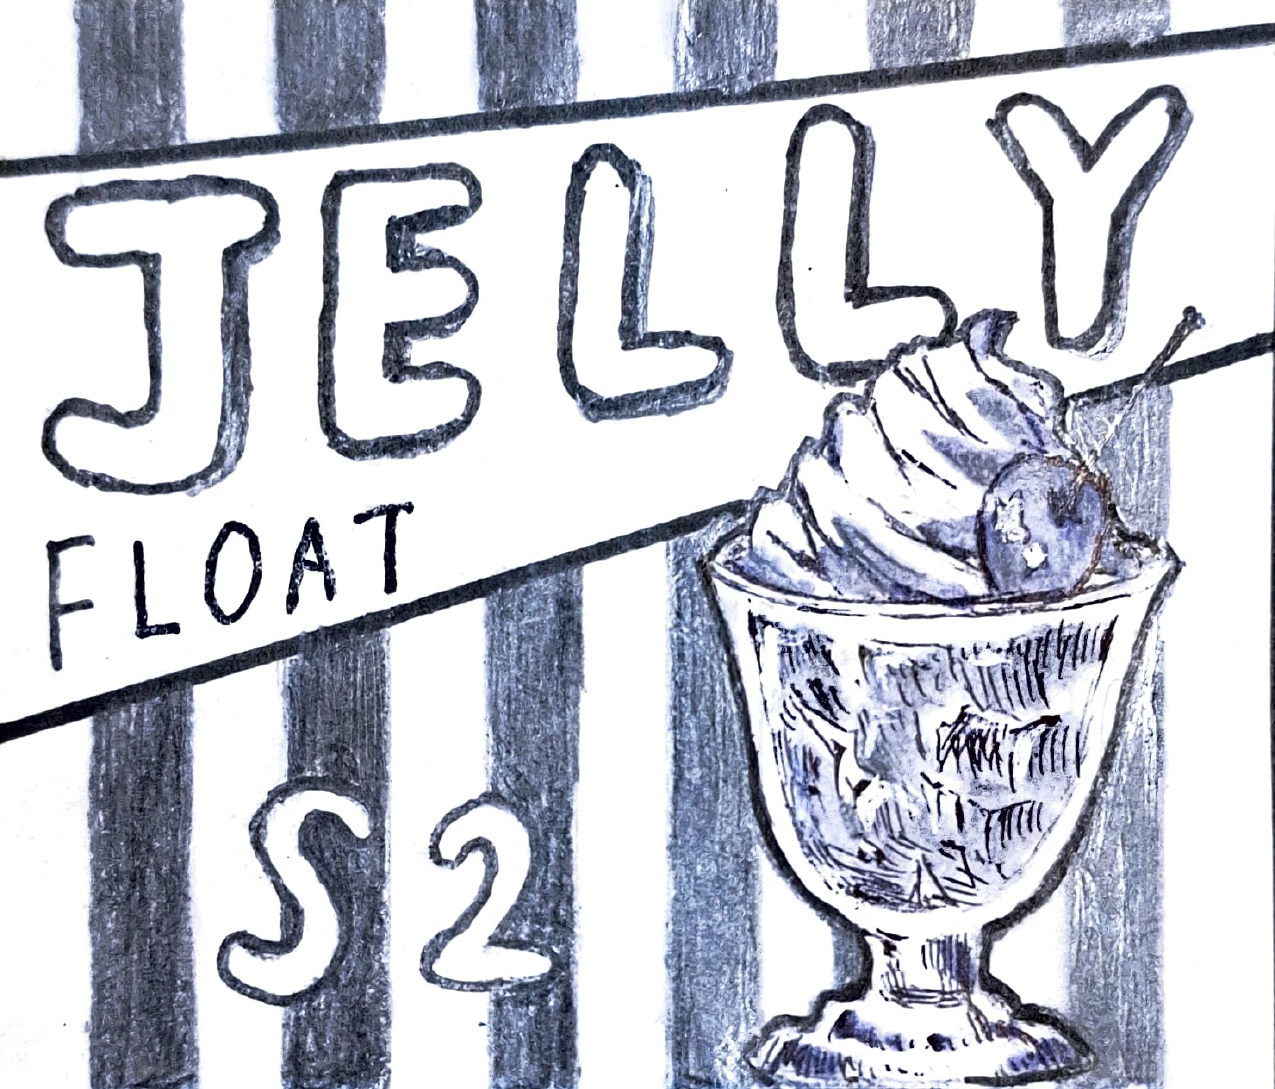 JELLY
FLOAT
S2